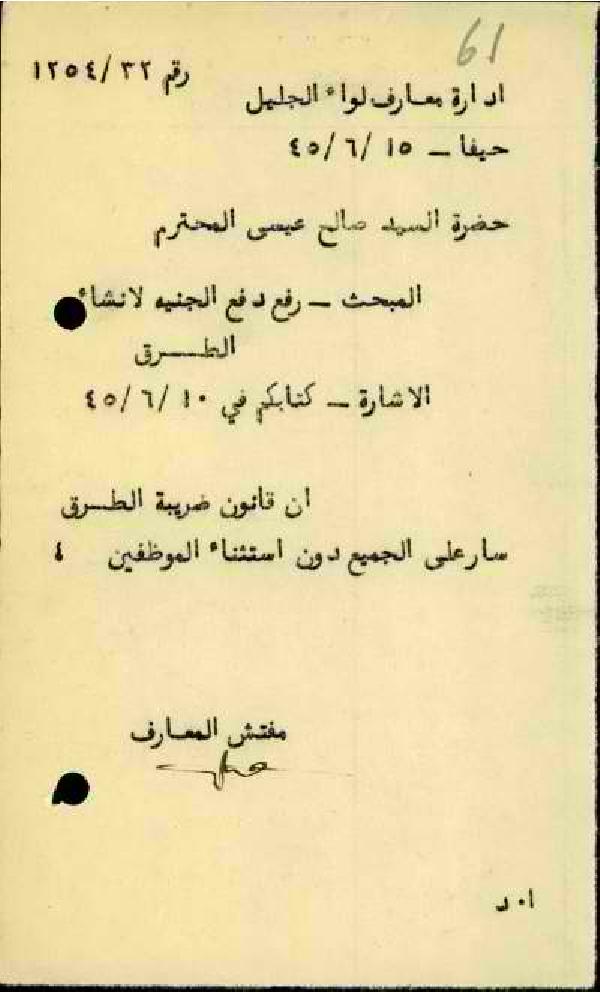 61
رقم ٣٢/ ١٢٥٤
ادارة معارف لواء الجليل
حيفا – ١٥ /٦ /٤٥
حضرة السيد صالح عيسى المحترم
المبحث – رفع دفع الجنيه لانشاء
الطـــرق
الاشارة – كتابكم في ١٠ /٦ /٤٥
ان قانون ضريبة الطـرق
سار على الجميع دون استثناء الموظفين ٤
مفتش المعارف
ا٠ د